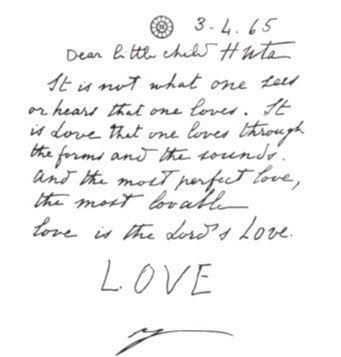 3-4.65
Dear little child Huta
It is not what one sees
or hears that one loves. It
is Love that one loves through
the forms and the sounds.
And the most perfect love,
the most lovable
love is the Lord's Love.
LOVE